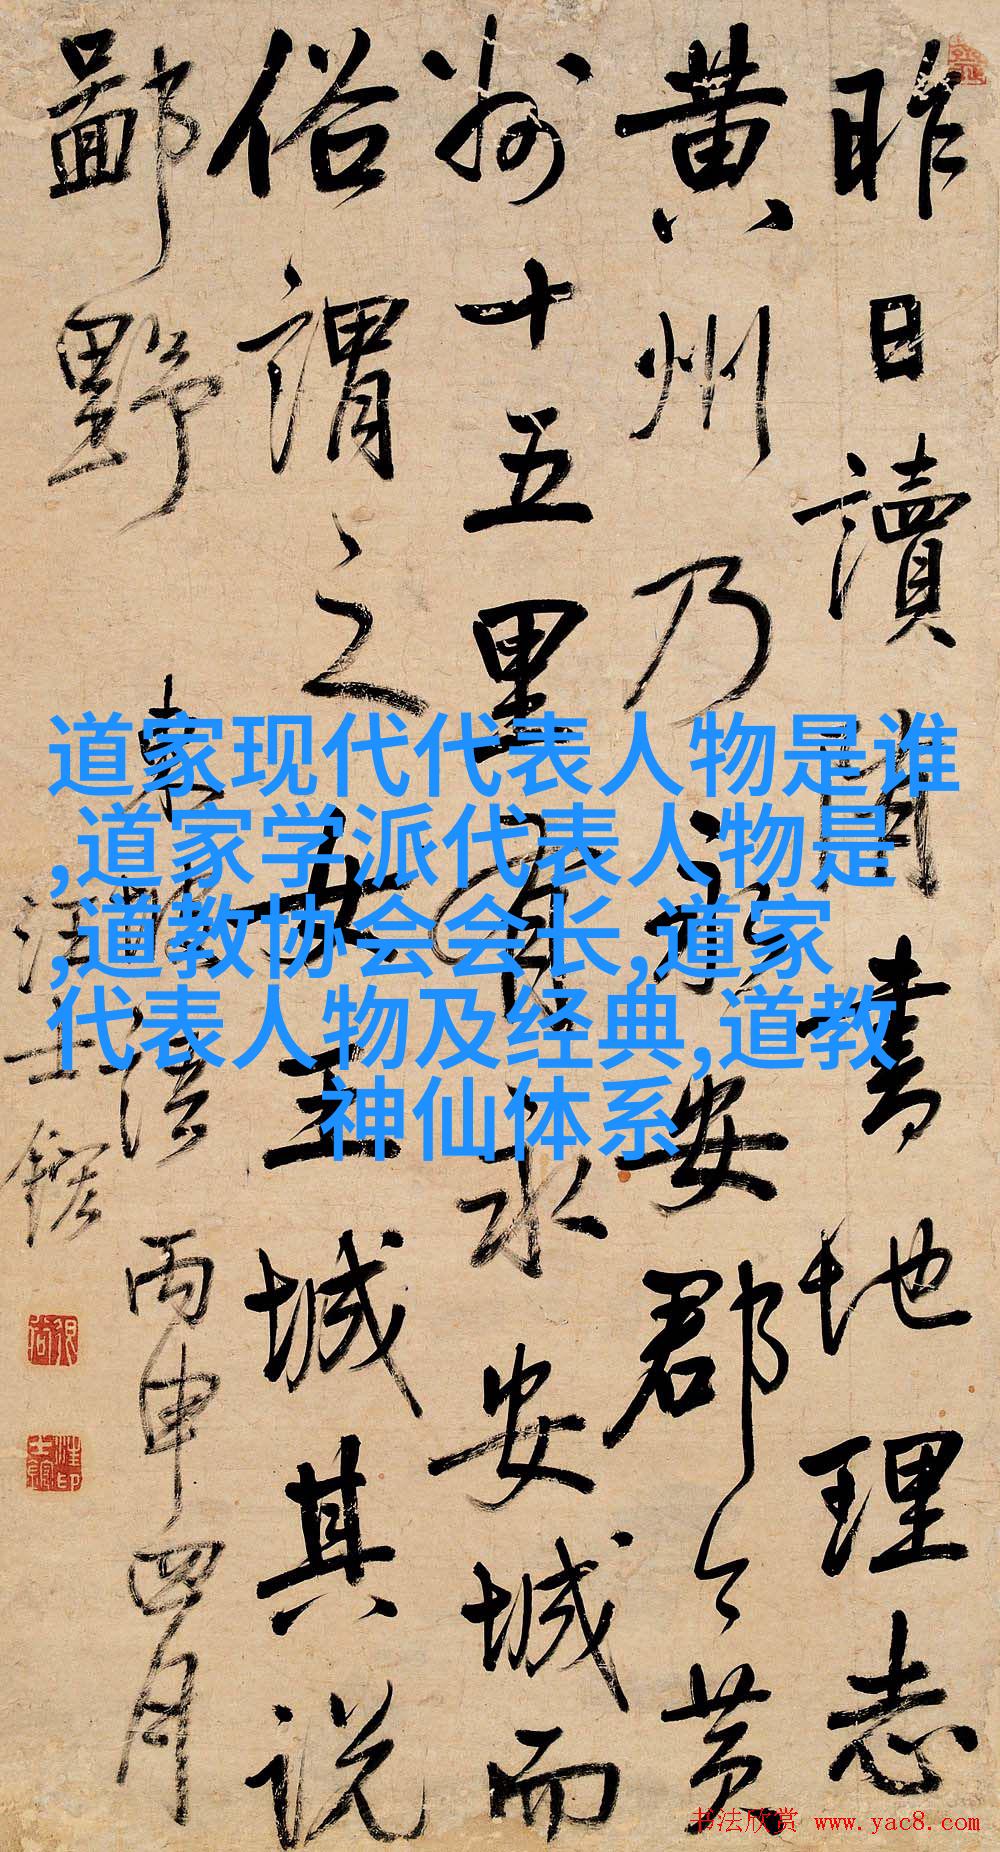 昨日讀隋書地理志
黄州乃永安郡今黄
州十五里有永安城而
俗謂之女王城其説
鄙野 東坡語 丙申四月
汪士鋐
道家现代代表人物是谁
,道家学派代表人物是
,道教协会会长,道家
代表人物及经典,道教
神仙体系
书法欣赏 www.yac8.com